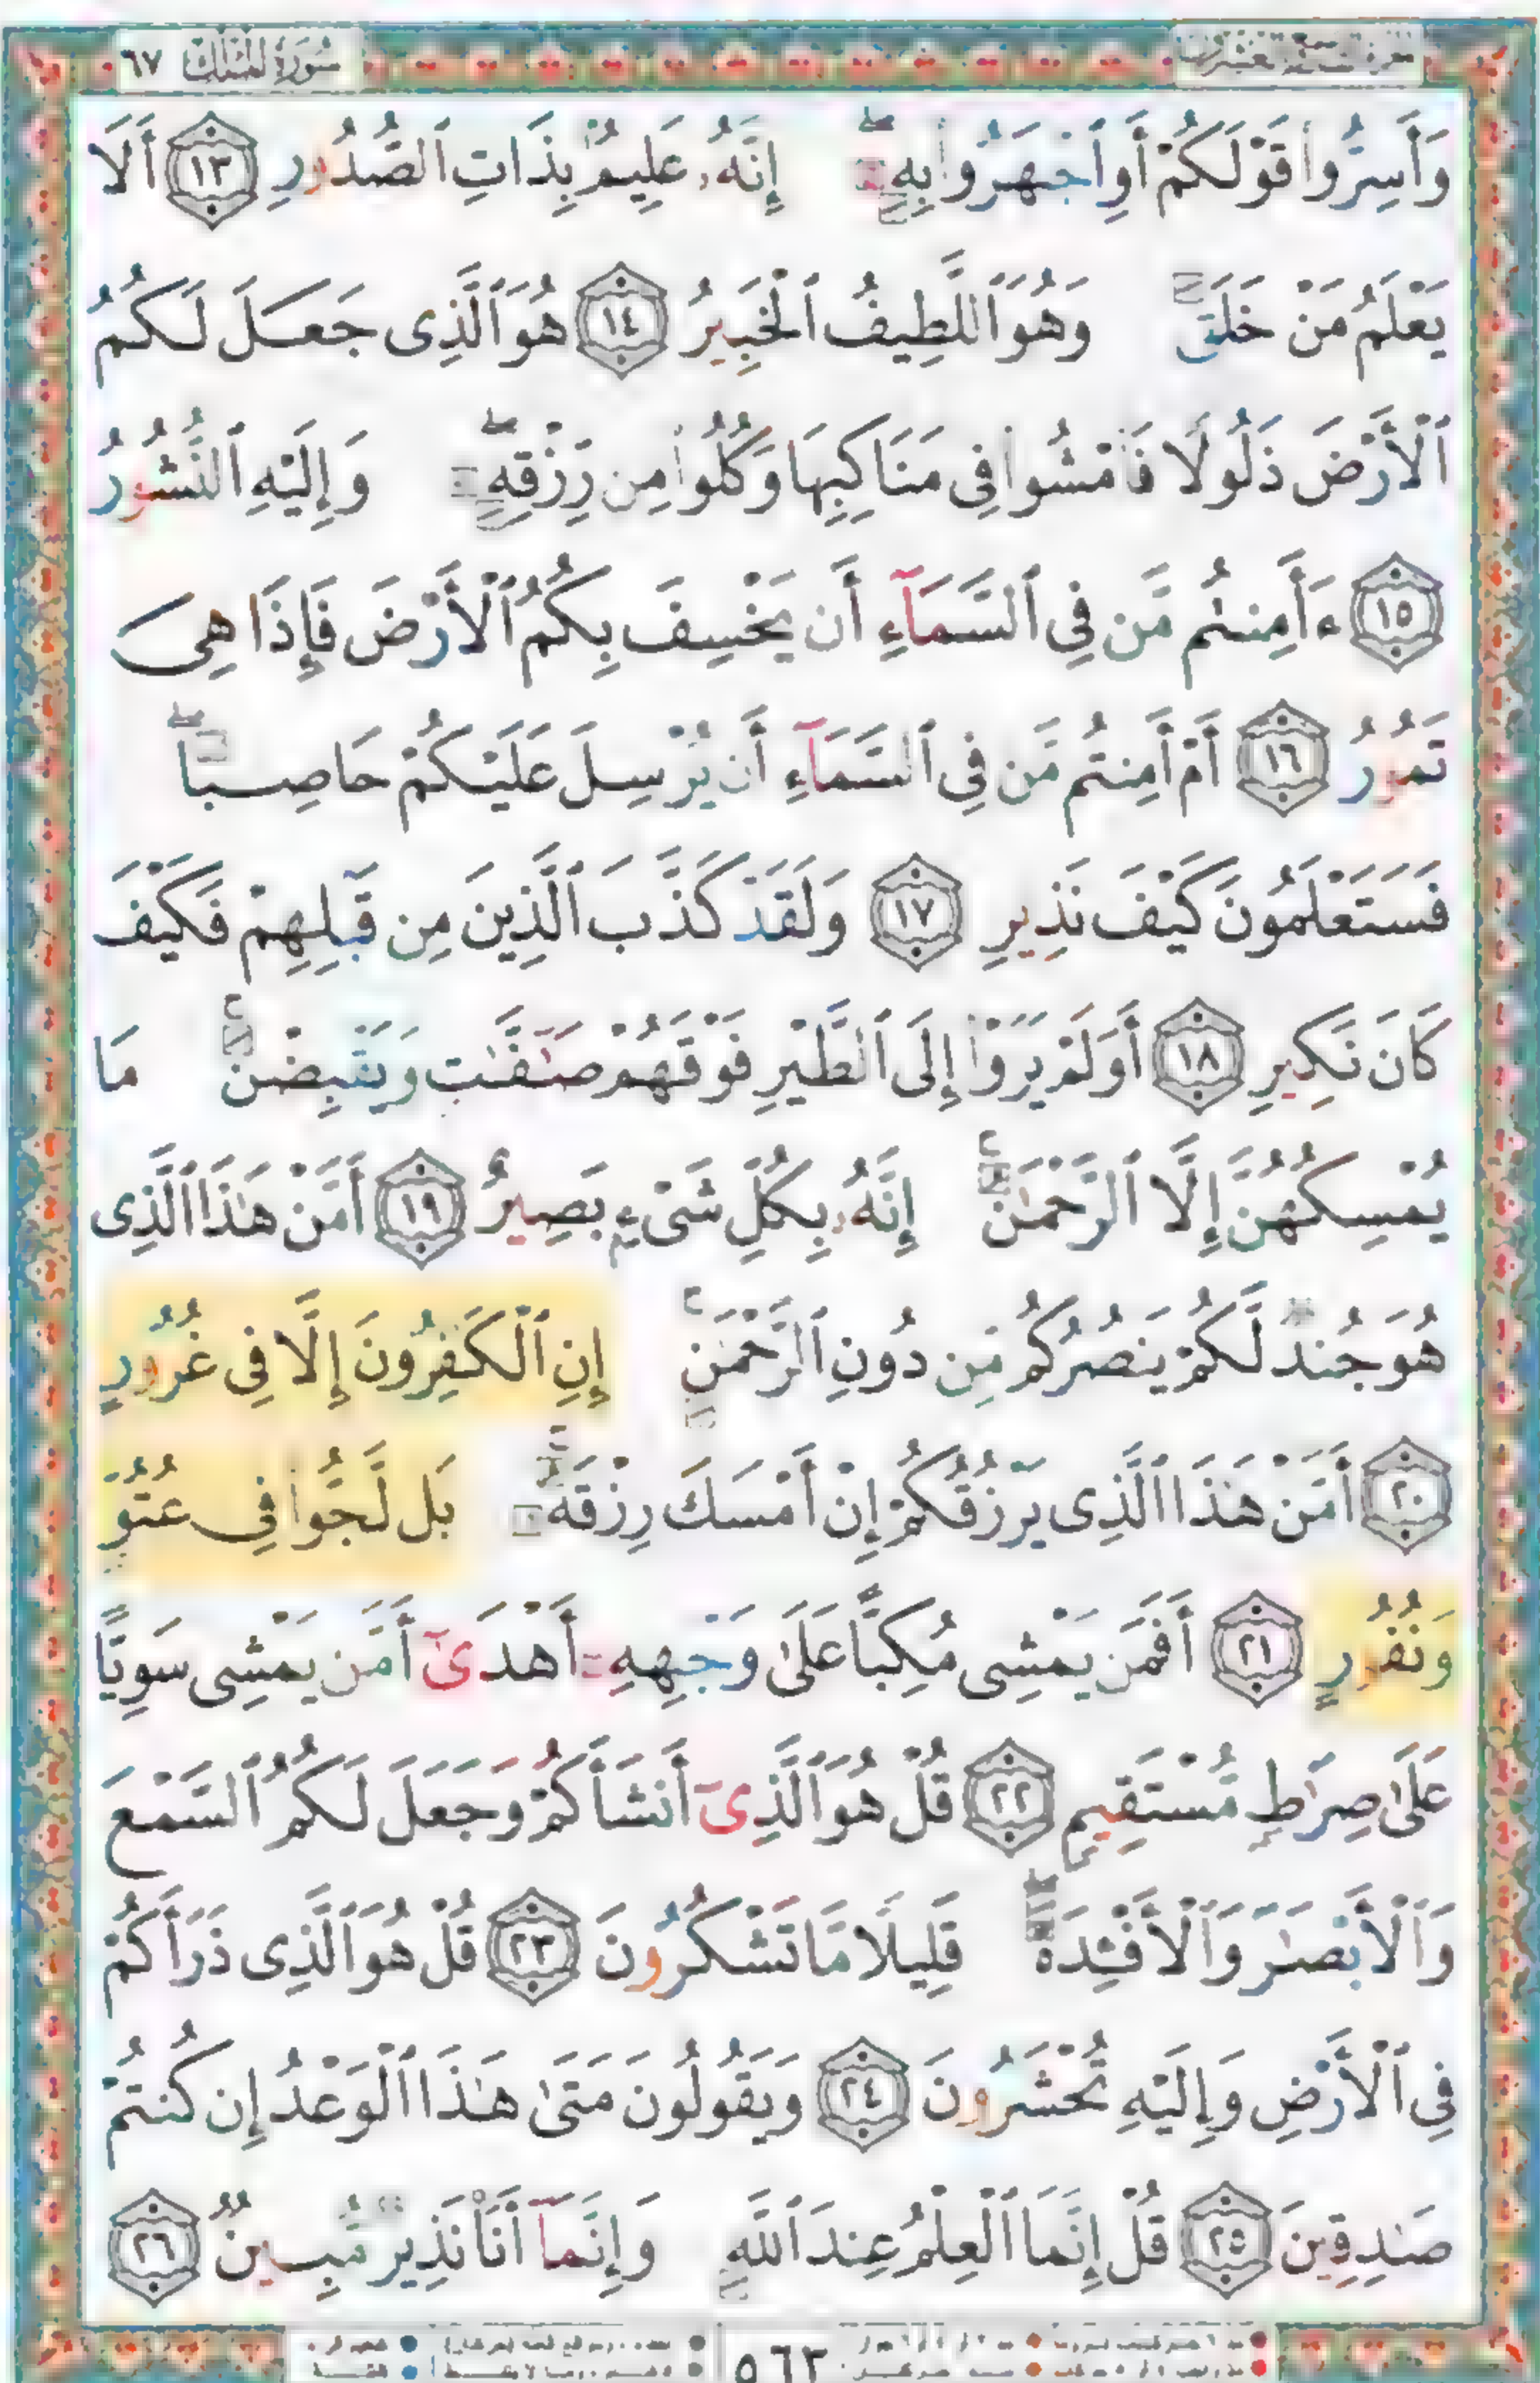 سُورَةُ الْمُلْكِ ٦٧
وَأَسِرُّوا۟ قَوْلَكُمْ أَوِ ٱجْهَرُوا۟ بِهِۦٓ ۖ إِنَّهُۥ عَلِيمٌۢ بِذَاتِ ٱلصُّدُورِ ١٣ أَلَا
يَعْلَمُ مَنْ خَلَقَ وَهُوَ ٱللَّطِيفُ ٱلْخَبِيرُ ١٤ هُوَ ٱلَّذِى جَعَلَ لَكُمُ
ٱلْأَرْضَ ذَلُولًا فَٱمْشُوا۟ فِى مَنَاكِبِهَا وَكُلُوا۟ مِن رِّزْقِهِۦ ۖ وَإِلَيْهِ ٱلنُّشُورُ
١٥ ءَأَمِنتُم مَّن فِى ٱلسَّمَآءِ أَن يَخْسِفَ بِكُمُ ٱلْأَرْضَ فَإِذَا هِىَ
تَمُورُ ١٦ أَمْ أَمِنتُم مَّن فِى ٱلسَّمَآءِ أَن يُرْسِلَ عَلَيْكُمْ حَاصِبًا ۖ
فَسَتَعْلَمُونَ كَيْفَ نَذِيرِ ١٧ وَلَقَدْ كَذَّبَ ٱلَّذِينَ مِن قَبْلِهِمْ فَكَيْفَ
كَانَ نَكِيرِ ١٨ أَوَلَمْ يَرَوْا۟ إِلَى ٱلطَّيْرِ فَوْقَهُمْ صَٰٓفَّٰتٍ وَيَقْبِضْنَ ۚ مَا
يُمْسِكُهُنَّ إِلَّا ٱلرَّحْمَٰنُ ۚ إِنَّهُۥ بِكُلِّ شَىْءٍۭ بَصِيرٌ ١٩ أَمَّنْ هَٰذَا ٱلَّذِى
هُوَ جُندٌ لَّكُمْ يَنصُرُكُم مِّن دُونِ ٱلرَّحْمَٰنِ ۚ إِنِ ٱلْكَٰفِرُونَ إِلَّا فِى غُرُورٍ
٢٠ أَمَّنْ هَٰذَا ٱلَّذِى يَرْزُقُكُمْ إِنْ أَمْسَكَ رِزْقَهُۥ ۚ بَل لَّجُّوا۟ فِى عُتُوٍّ
وَنُفُورٍ ٢١ أَفَمَن يَمْشِى مُكِبًّا عَلَىٰ وَجْهِهِۦٓ أَهْدَىٰٓ أَمَّن يَمْشِى سَوِيًّا
عَلَىٰ صِرَٰطٍ مُّسْتَقِيمٍ ٢٢ قُلْ هُوَ ٱلَّذِىٓ أَنشَأَكُمْ وَجَعَلَ لَكُمُ ٱلسَّمْعَ
وَٱلْأَبْصَٰرَ وَٱلْأَفْـِٔدَةَ ۖ قَلِيلًا مَّا تَشْكُرُونَ ٢٣ قُلْ هُوَ ٱلَّذِى ذَرَأَكُمْ
فِى ٱلْأَرْضِ وَإِلَيْهِ تُحْشَرُونَ ٢٤ وَيَقُولُونَ مَتَىٰ هَٰذَا ٱلْوَعْدُ إِن كُنتُمْ
صَٰدِقِينَ ٢٥ قُلْ إِنَّمَا ٱلْعِلْمُ عِندَ ٱللَّهِ وَإِنَّمَآ أَنَا۠ نَذِيرٌ مُّبِينٌ ٢٦
٥٦٣